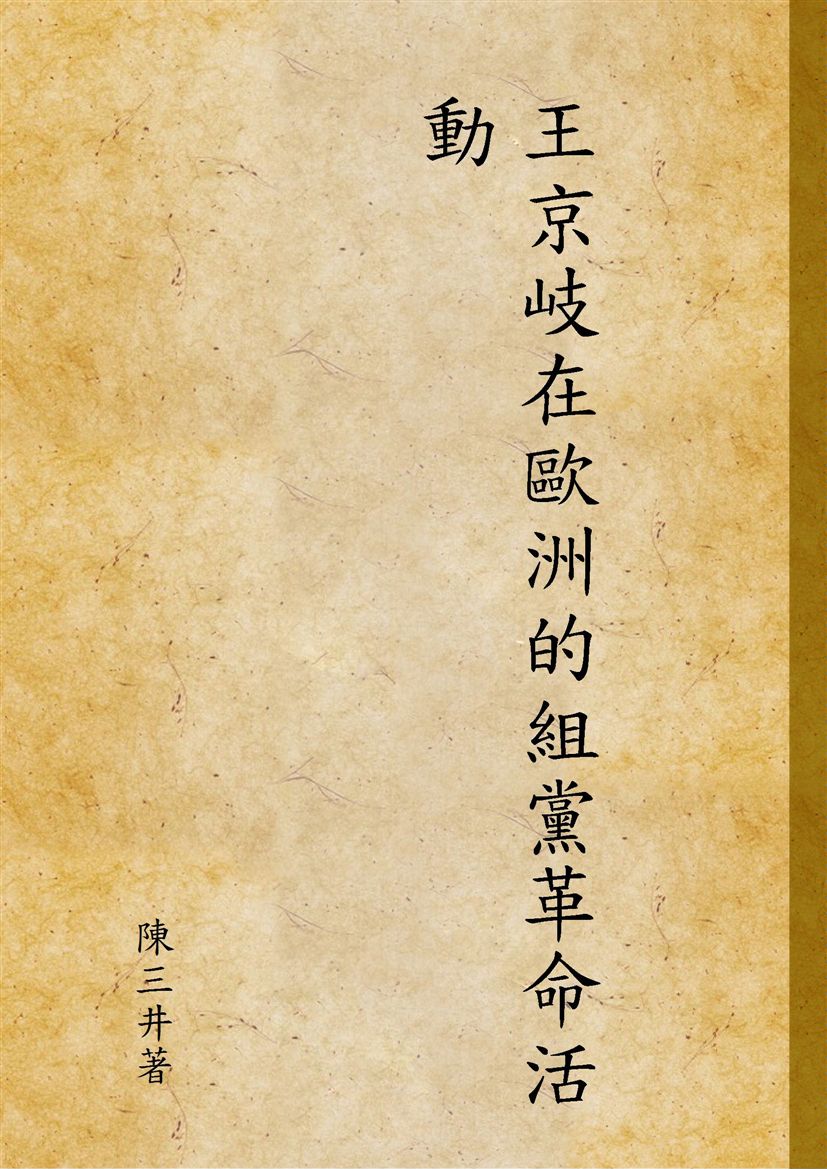 王京岐在歐洲的組黨革命活
動
陳三井著